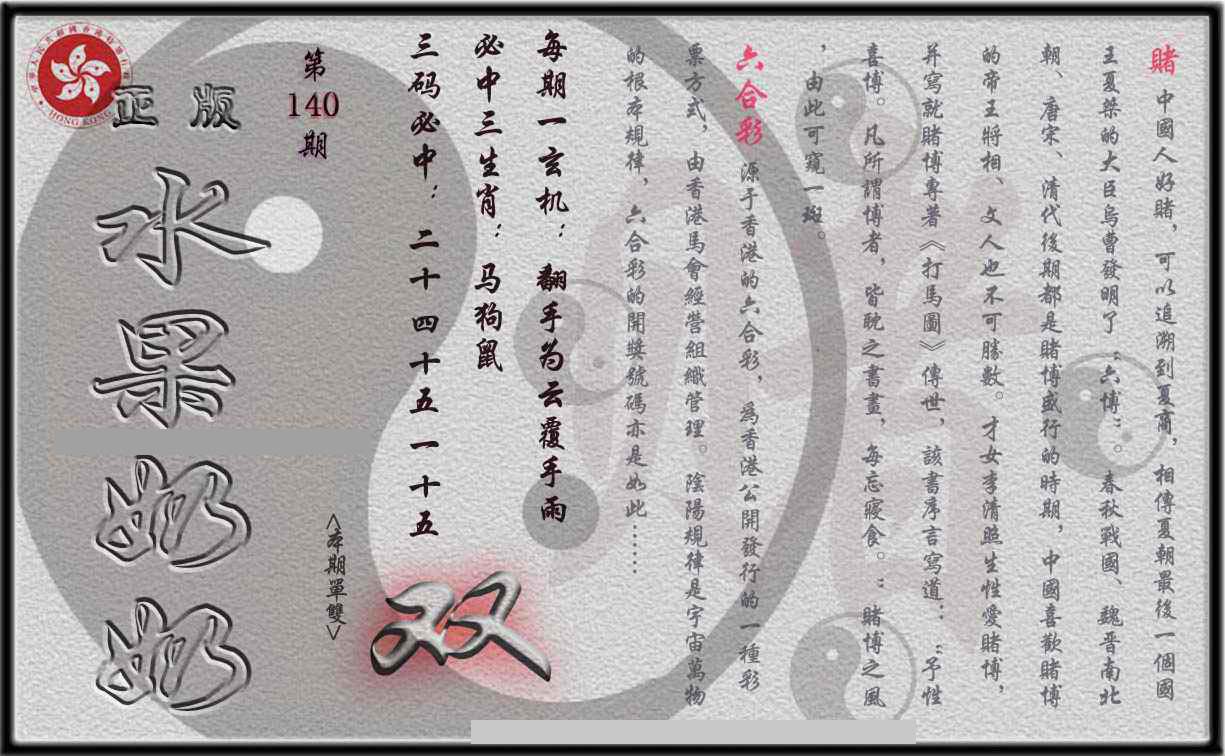 賭 中國人好賭，可以追溯到夏商，相傳夏朝最後一個國
王夏桀的大臣烏曹發明了“六博”。春秋戰國、魏晋南北
朝、唐宋、清代後期都是賭博盛行的時期，中國喜歡賭博
的帝王將相、文人也不可勝數。才女李清照生性愛賭博，
并寫就賭博專著《打馬圖》傳世，該書序言寫道：“予性
喜博。凡所謂博者，皆耽之書晝，每忘寢食。”賭博之風
，由此可窺一斑。
六合彩 源于香港的六合彩，爲香港公開發行的一種彩
票方式，由香港馬會經營組織管理。陰陽規律是宇宙萬物
的根本規律，六合彩的開獎號碼亦是如此……
每期一玄机：翻手为云覆手雨
必中三生肖：马狗鼠
三码必中：二十四十五一十五
双
<本期單雙>
第
140
期
正版
水果奶奶
HONG KONG